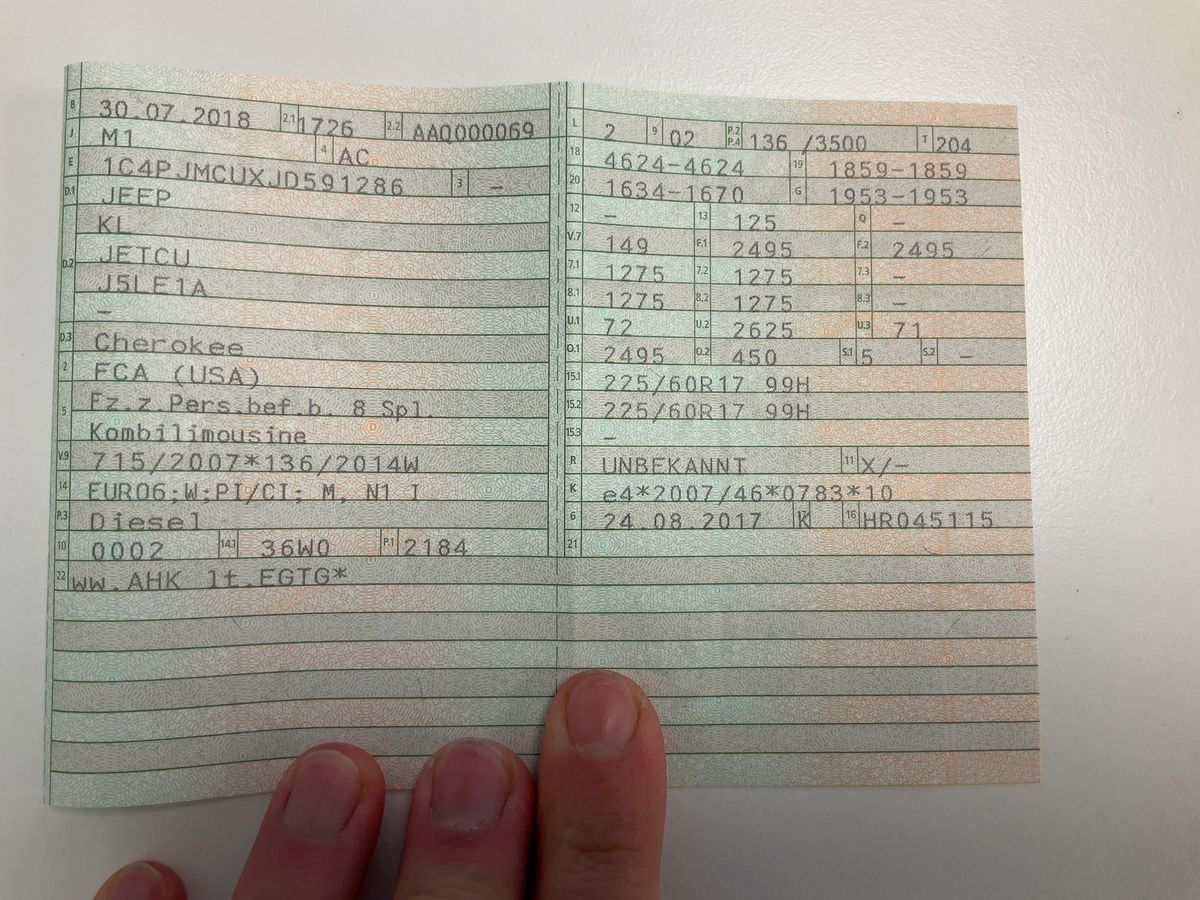 B 30.07.2018 2.1 1726 2.2 AAQ000069
J M1 4 AC
E 1C4PJMCUXJD591286 3 –
D.1 JEEP
KL
D.2 JETCU
J5LE1A
–
D.3 Cherokee
2 FCA (USA)
5 Fz.z.Pers.bef.b. 8 Spl.
Kombilimousine
V.9 715/2007*136/2014W
14 EURO6;W;PI/CI; M, N1 I
P.3 Diesel
10 0002 14.1 36W0 P.1 2184
22 ww.AHK lt.EGTG*
L 2 9 02 P.2 P.4 136 /3500 T 204
18 4624-4624 19 1859-1859
20 1634-1670 G 1953-1953
12 – 13 125 Q –
V.7 149 F.1 2495 F.2 2495
7.1 1275 7.2 1275 7.3 –
8.1 1275 8.2 1275 8.3 –
U.1 72 U.2 2625 U.3 71
O.1 2495 O.2 450 S.1 5 S.2 –
15.1 225/60R17 99H
15.2 225/60R17 99H
15.3 –
R UNBEKANNT 11 X/-
K e4*2007/46*0783*10
6 24.08.2017 K 16 HR045115
21